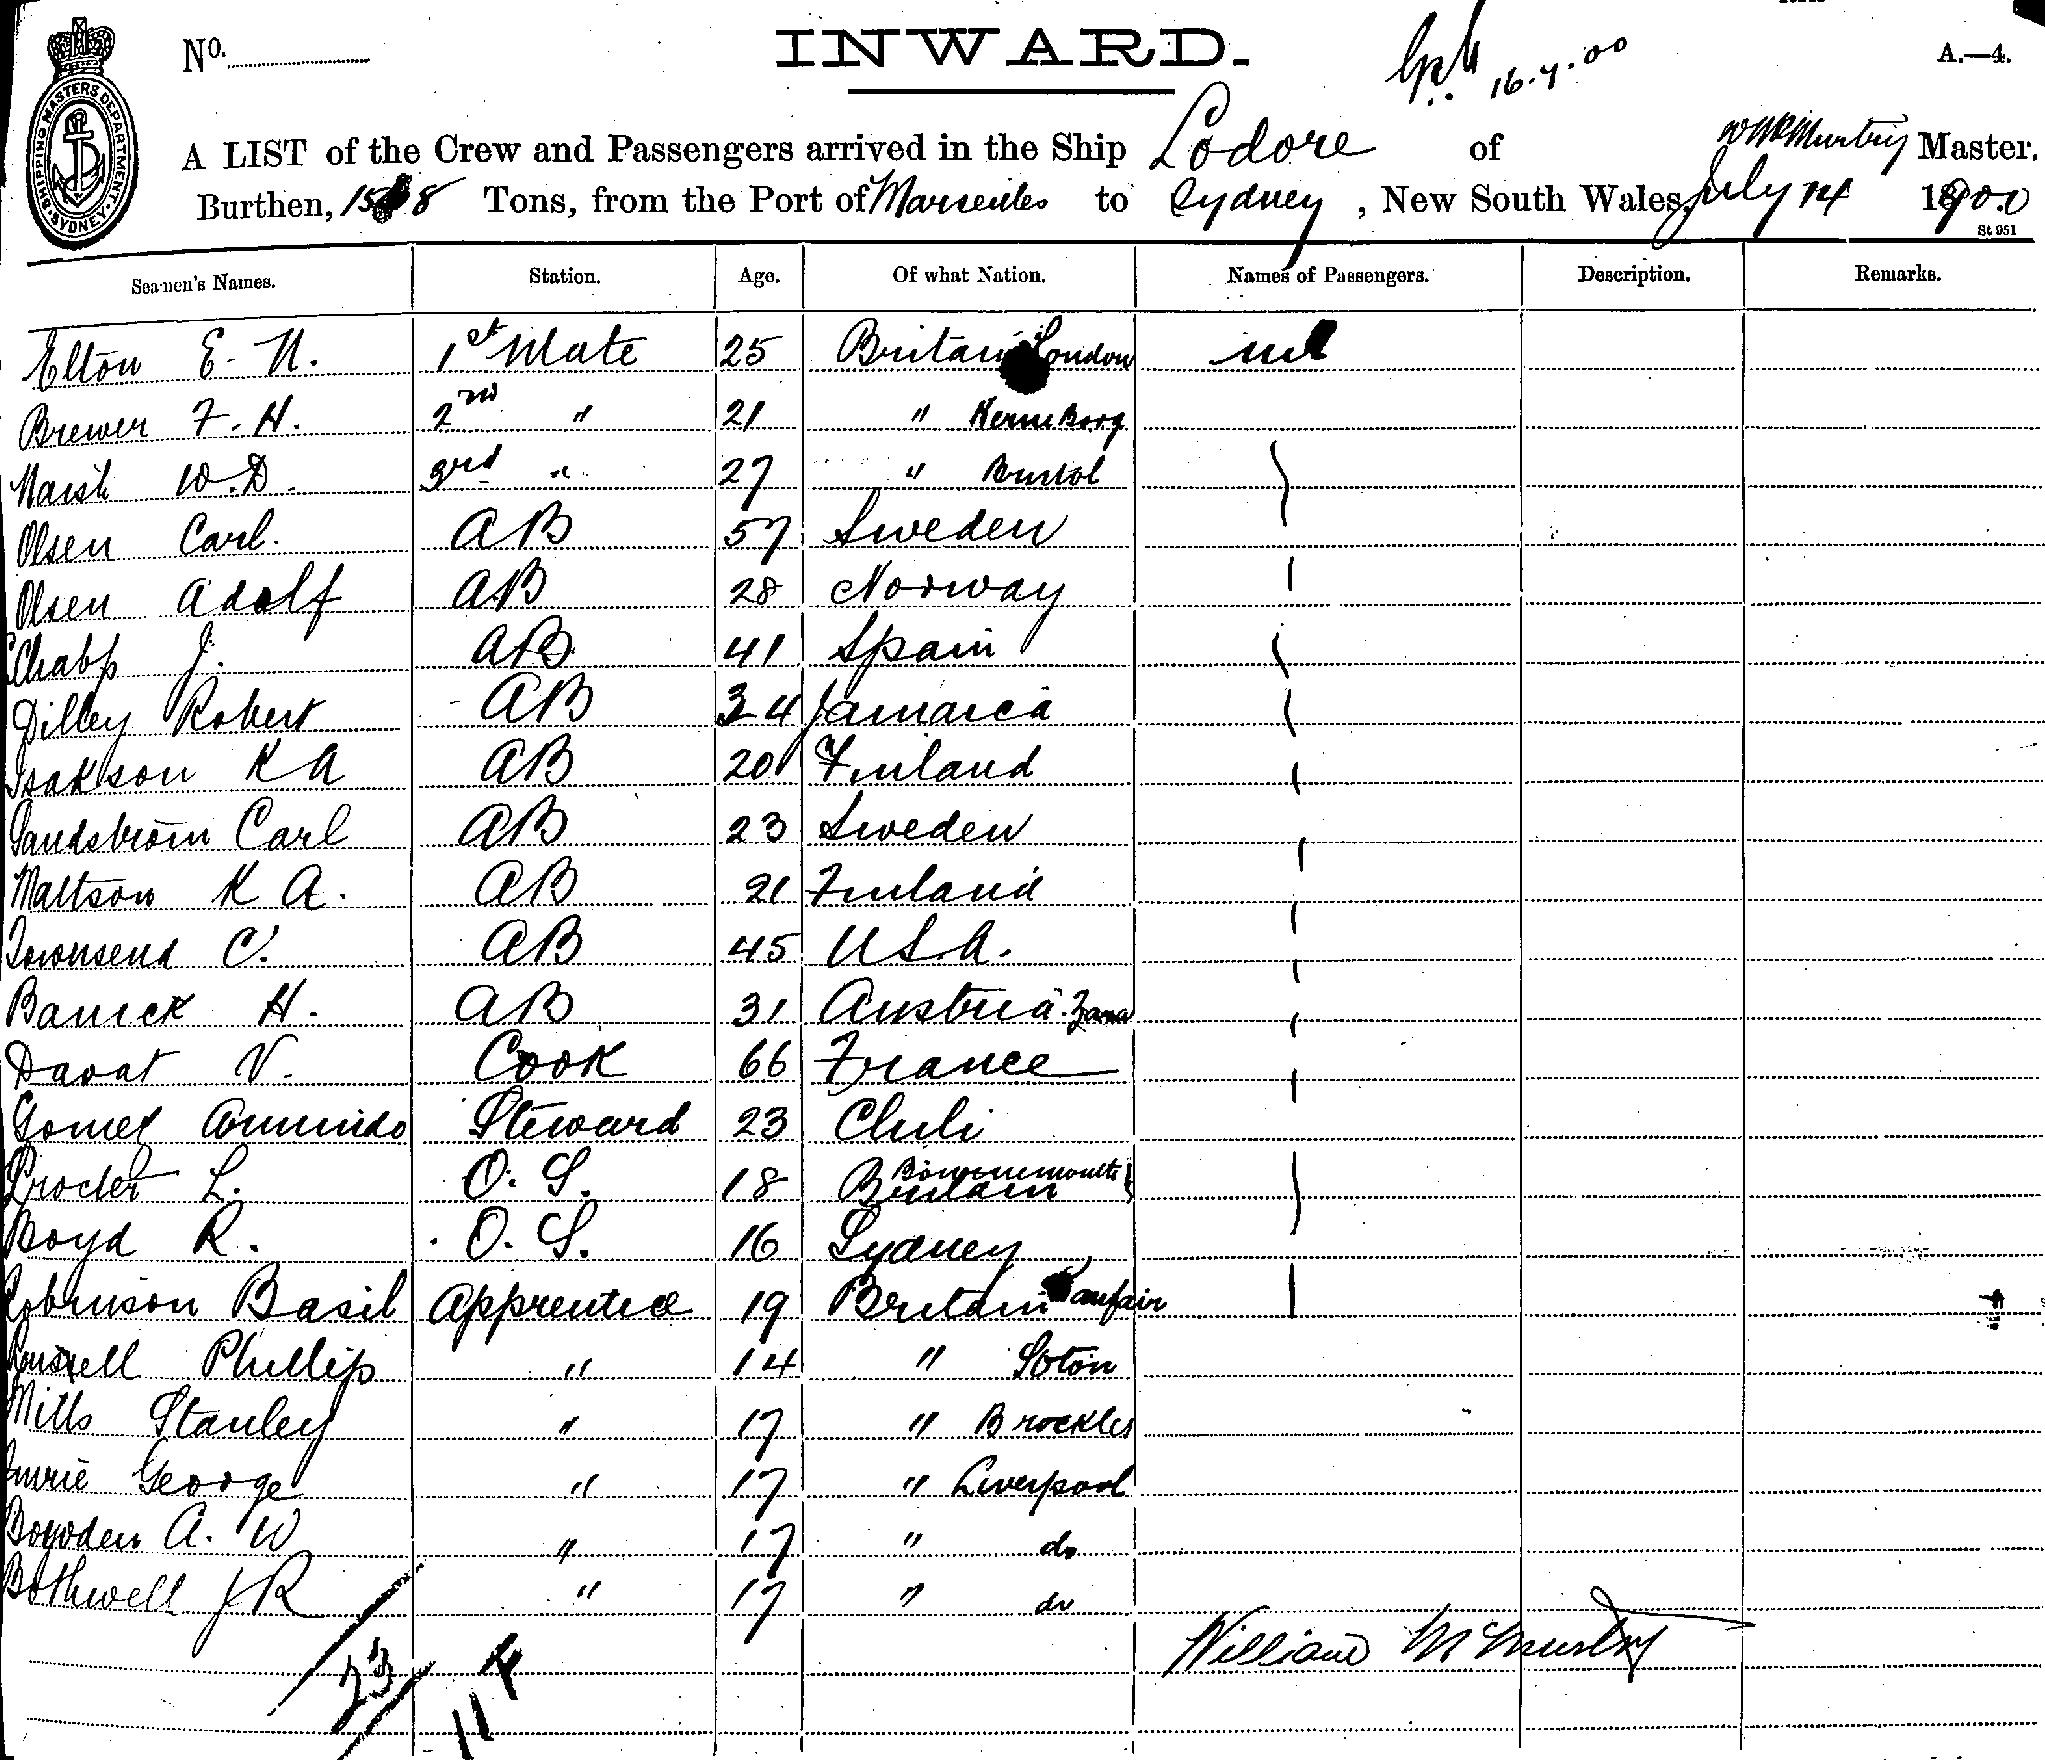 No.
INWARD.
16.7.00
A.—4.
SHIPPING MASTERS DEPARTMENT
SYDNEY
A LIST of the Crew and Passengers arrived in the Ship Lodore of Master.
Burthen, Tons, from the Port of Marseilles to Sydney, New South Wales, July 14 1900
St 951
Seamen's Names. Station. Age. Of what Nation. Names of Passengers. Description. Remarks.
Elton E. N. 1st Mate 25 Britain London nil
Brewer F. H. 2nd " 21 "
Naish W. D. 3rd " 27 " Bristol
Olsen Carl. AB 57 Sweden
Olsen Adolf AB 28 Norway
J. AB 41 Spain
Dilley Robert AB 34 Jamaica
Isakson K A AB 20 Finland
Sandström Carl AB 23 Sweden
Mattson K A. AB 21 Finland
Townsend C. AB 45 U.S.A.
H. AB 31 Austria Zara
Davat V. Cook 66 France
Gomez Steward 23 Chili
Procter L. O. S. 18 Britain Bournemouth
Boyd R. O. S. 16 Sydney
Robinson Basil Apprentice 19 Britain
Phillip " 14 " Soton
Mills Stanley " 17 "
George " 17 " Liverpool
Bowden A. W " 17 " do
Bothwell J R " 17 " do
William McMurtry
23
11